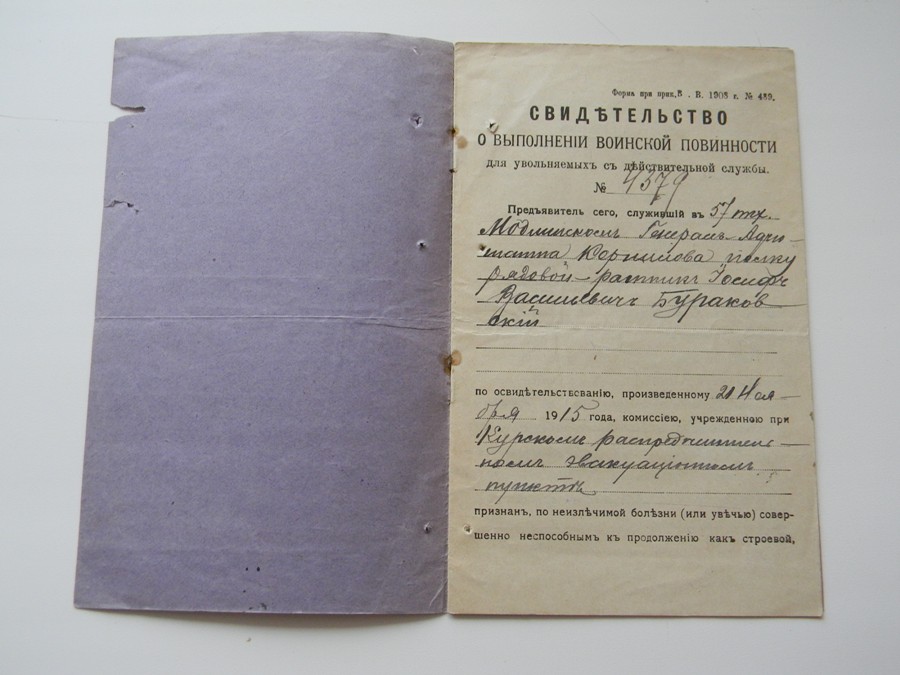 Форма при прик. В. В. 1908 г. № 489.
СВИДѢТЕЛЬСТВО
О ВЫПОЛНЕНІИ ВОИНСКОЙ ПОВИННОСТИ
для увольняемыхъ съ дѣйствительной службы.
№ 4579
Предъявитель сего, служившій въ 57 пѣх.
Модлинскомъ Генералъ Адъю-
танта Корнилова полку
рядовой-ратникъ Іосифъ
Васильевичъ Бураков
скій
по освидѣтельствованію, произведенному 21 Ноя-
бря 1915 года, комиссіею, учрежденною при
Курскомъ распредѣлитель-
номъ эвакуаціонномъ
пунктѣ
признанъ, по неизлѣчимой болѣзни (или увѣчью) совер-
шенно неспособнымъ къ продолженію какъ строевой,